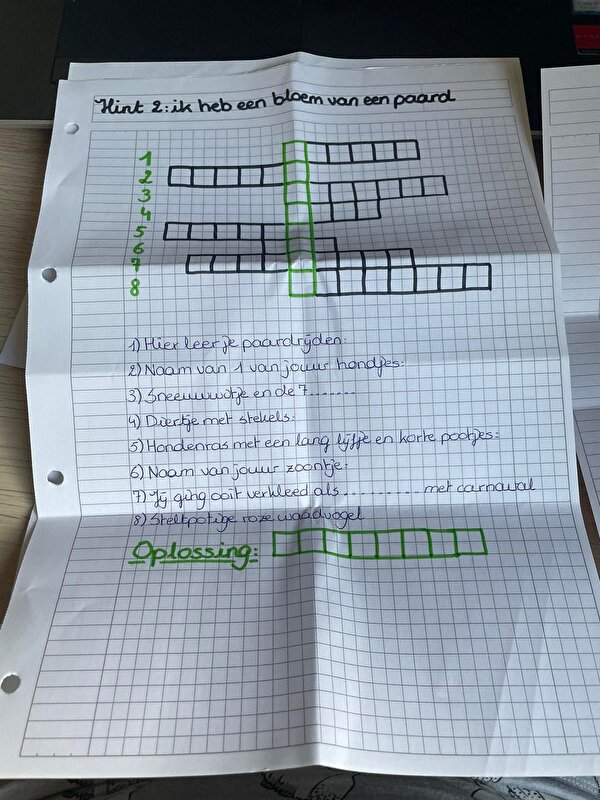 Hint 2: ik heb een bloem van een paard
1
2
3
4
5
6
7
8
1) Hier leer je paardrijden:
2) Naam van 1 van jouw hondjes:
3) Sneeuwwitje en de 7........
4) Diertje met stekels:
5) Hondenras met een lang lijfje en korte pootjes:
6) Naam van jouw zoontje:
7) Jij ging ooit verkleed als ............ met carnaval
8) Steltpotige roze waadvogel
Oplossing: